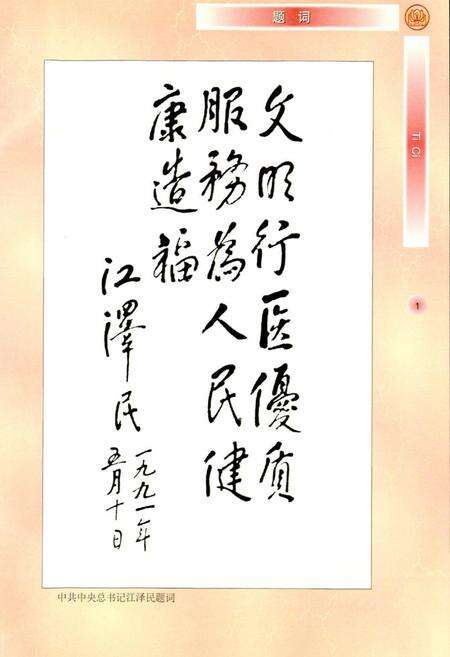 题 词
Ti Ci
1
文明行医優质
服務為人民健
康造福
江澤民
一九九一年
五月十日
中共中央总书记江泽民题词